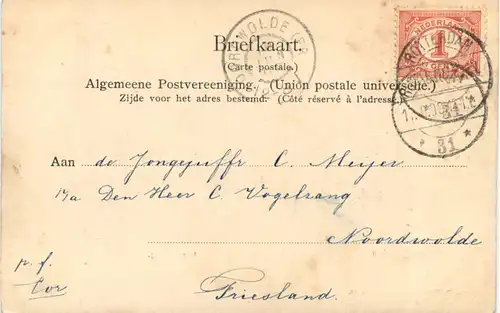 NOORDWOLDE (FR
Briefkaart.
(Carte postale.)
NEDERLAND
1
ROTTERDAM
Algemeene Postvereeniging. (Union postale universelle.)
Zijde voor het adres bestemd. (Côté réservé à l'adresse.)
31
Aan de Jongejuffr C. Meijer
p/a Den Heer C. Vogelzang
Noordwolde
p. f.
Cor
Friesland.